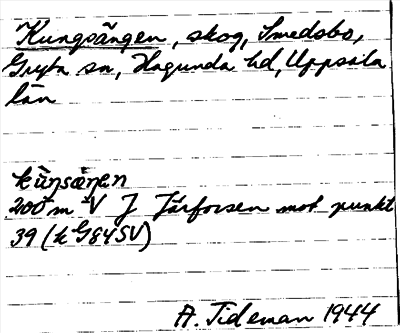 Kungsängen, skog, Smedsbo,
Gryta sn, Hagunda hd, Uppsala
län
kùŋsæ̀ŋen
200 m V J Järforsen mot punkt
39 (k G84SV)
A. Tideman 1944